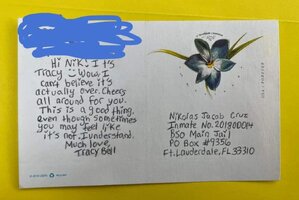 Hi Nik! It's
Tracy Wow, I
can't believe it's
actually over. Cheers
all around for you.
This is a good thing,
even though sometimes
you may feel like
it's not. I understand.
Much love,
Tracy Bell
Nikolas Jacob Cruz
Inmate No. 201800014
BSO Main Jail
PO Box #9356
Ft. Lauderdale, FL 33310
USA FOREVER